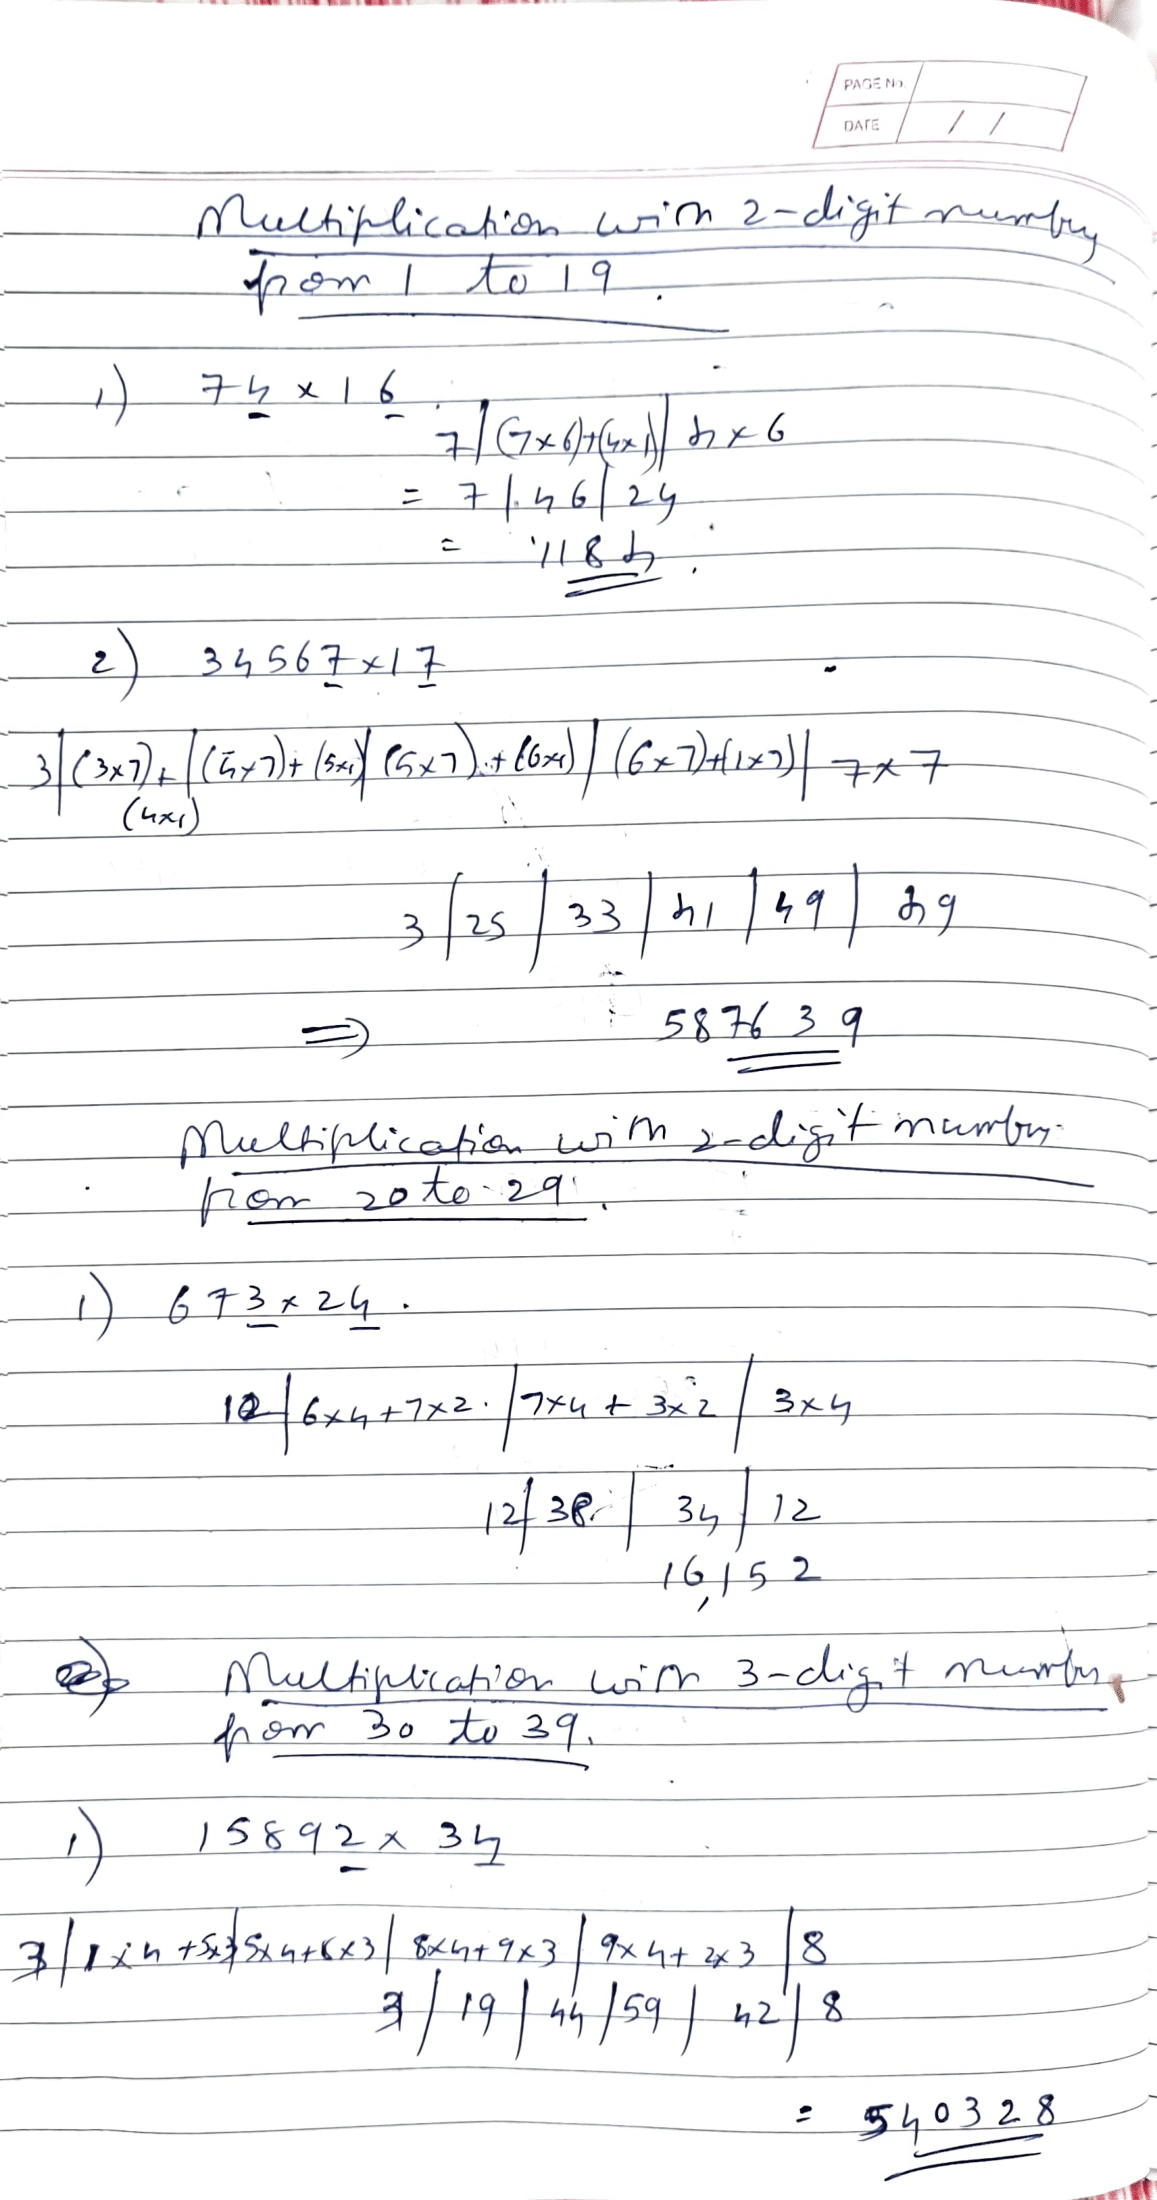 PAGE No.
DATE / /
Multiplication with 2-digit number
from 1 to 19.
1) 74 x 16
7/(7x6)+(4x1)/4x6
= 7/46/24
= 1184.
2) 34567x17
3/(3x7)+/(4x7)+(5x1)/(5x7)+(6x1)/(6x7)+(1x7)/7x7
(4x1)
3/25/33/41/49/49
=> 587639
Multiplication with 2-digit number
from 20 to 29.
1) 673x24.
12/6x4+7x2./7x4+3x2/3x4
12/38/34/12
16,152
Multiplication with 3-digit number
from 30 to 39.
1) 15892x34
3/1x4+5x3/5x4+8x3/8x4+9x3/9x4+2x3/8
3/19/44/59/42/8
= 540328